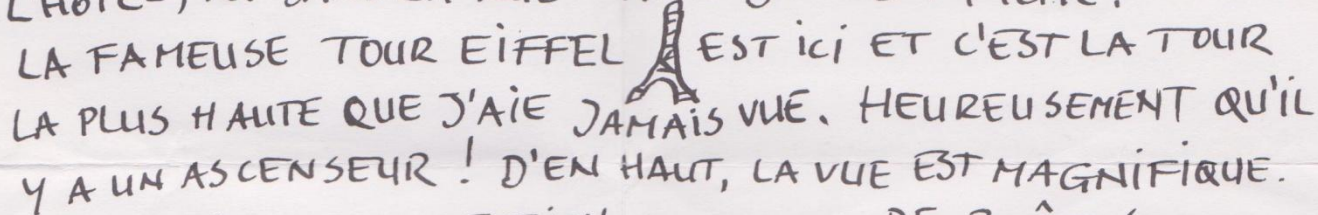 LA FAMEUSE TOUR EiFFEL EST iCi ET C'EST LA TOUR
LA PLUS HAUTE QUE J'AiE JAMAiS VUE. HEUREUSEMENT QU'iL
Y A UN ASCENSEUR ! D'EN HAUT, LA VUE EST MAGNiFiQUE.